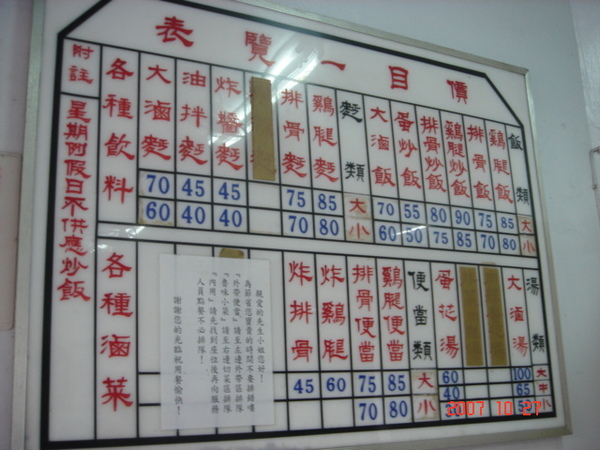 價目一覽表
飯類 大 小
鷄腿飯 85 80
排骨飯 75 70
鷄腿炒飯 90 85
排骨炒飯 80 75
蛋炒飯 55 50
大滷飯 70 60
麪類 大 小
鷄腿麪 85 80
排骨麪 75 70
炸醬麪 45 40
油拌麪 45 40
大滷麪 70 60
各種飲料
附註
星期例假日不供應炒飯
湯類 大 中 小
大滷湯 100 65
蛋花湯 60 40
便當類 大 小
鷄腿便當 85 80
排骨便當 75 70
炸鷄腿 60
炸排骨 45
各種滷菜
親愛的先生小姐您好!
為節省您寶貴的時間不要排錯嘍
『外帶便當』請至左邊外帶區排隊
『魯味小菜』請至右邊切菜區排隊
『內用』請先找到座位後再向服務
人員點餐不必排隊!
謝謝您的光臨祝用餐愉快!
2007 10 27